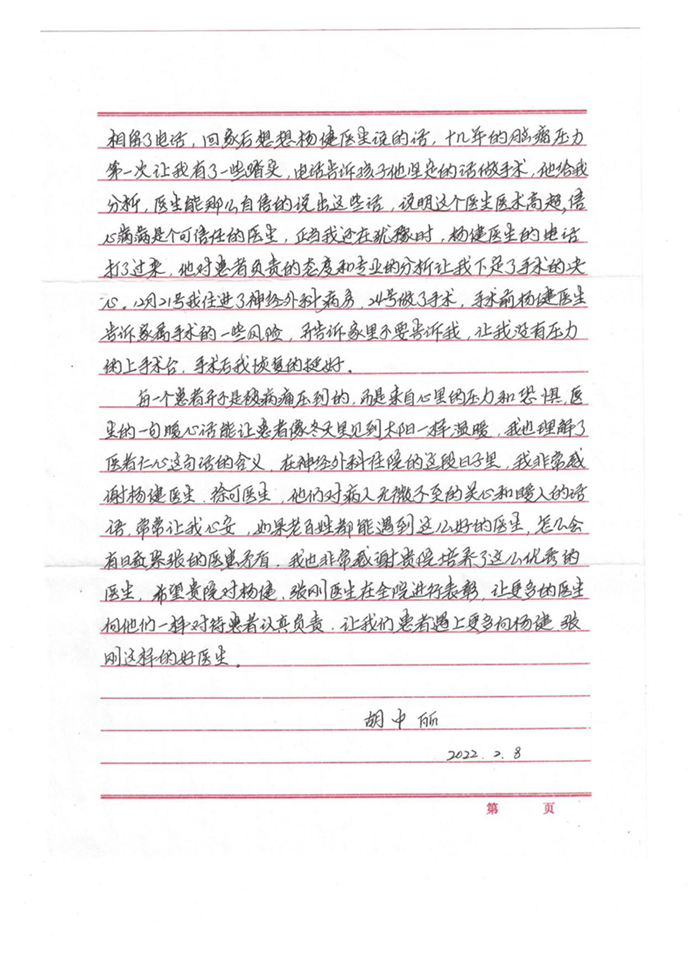 相留了电话，回家后想想杨健医生说的话，十几年的脑痛压力
第一次让我有了一些踏实，电话告诉孩子他坚定的话做手术，他给我
分析，医生能那么自信的说出这些话，说明这个医生医术高超，信
心满满是个可信任的医生，正当我还在犹豫时，杨健医生的电话
打了过来，他对患者负责的态度和专业的分析让我下定了手术的决
心。12月21号我住进了神经外科病房，24号做了手术，手术前杨健医生
告诉家属手术的一些风险，并告诉家里不要告诉我，让我没有压力
的上手术台，手术后我恢复的挺好。
每一个患者并不是被病痛压到的，而是来自心里的压力和恐惧，医
生的一句暖心话能让患者像冬天里见到太阳一样温暖，我也理解了
医者仁心这句话的含义，在神经外科住院的这段日子里，我非常感
谢杨健医生，徐可医生，他们对病人无微不至的关心和暖人的话
语，常常让我心安，如果老百姓都能遇到这么好的医生，怎么会
有日趋紧张的医患矛盾，我也非常感谢贵院培养了这么优秀的
医生，希望贵院对杨健，张刚医生在全院进行表彰，让更多的医生
向他们一样对待患者认真负责，让我们患者遇上更多向杨健，张
刚这样的好医生。
胡中丽
2022.2.8
第 页